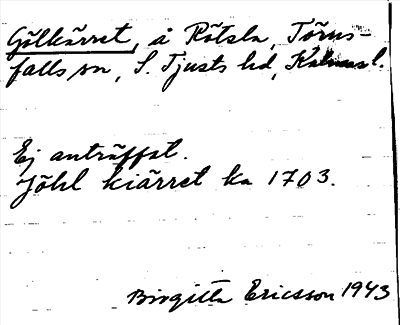 Gölkärret, å Rötsla, Törns-
falls sn, S. Tjusts hd, Kalmar l.
Ej anträffat.
Jöhl kiärret ka 1703.
Birgitta Ericsson 1943